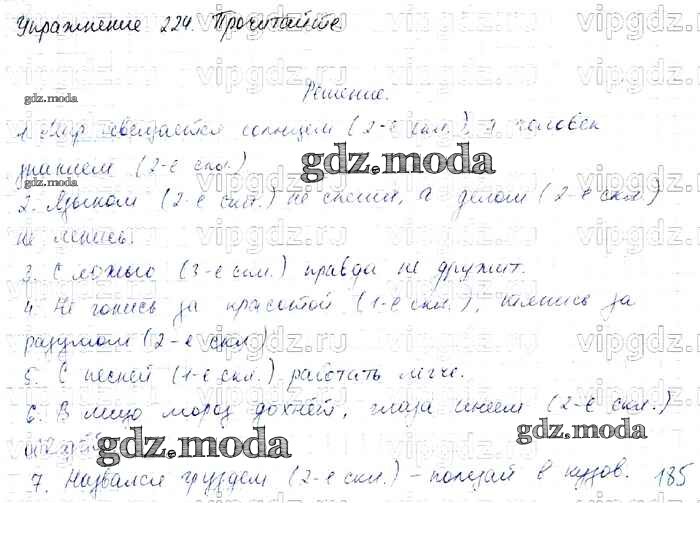 Упражнение 224. Прочитайте.
Решение.
gdz.moda
1. Мир освещается солнцем (2-е скл.), а человек
знанием (2-е скл.)
gdz.moda
gdz.moda
2. Языком (2-е скл.) не спеши, а делом (2-е скл.)
не ленись.
3. С ложью (3-е скл.) правда не дружит.
4. Не гонись за красотой (1-е скл.), гонись за
разумом (2-е скл.)
5. С песней (1-е скл.) работать легче.
6. В лицо мороз дохнёт, глаза инеем (2-е скл.)
gdz.moda
gdz.moda
7. Назвался груздем (2-е скл.) - полезай в кузов.
185
vipgdz.ru